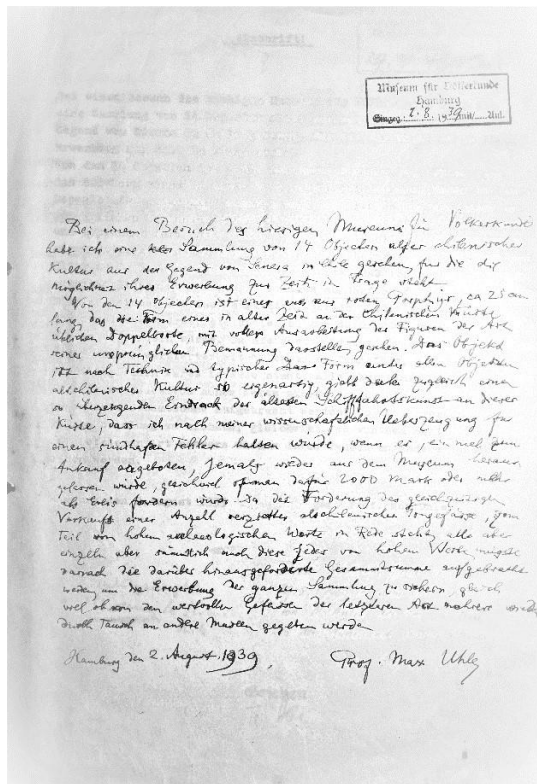 Museum für Völkerkunde
Hamburg
Eingeg. 2. 8. 1939 mit Anl.
Bei einem Besuch des hiesigen Museums für Völkerkunde
habe ich eine Sammlung von 14 Objecten alter chilenischer
Kultur aus der Gegend von Serena in Chile gesehen, für die die
Möglichkeit ihres Erwerbung zur Zeit in Frage steht.
Von den 14 Objecten ist eines aus rotem Porphyr, ca 25 cm
lang, das die Form eines in alter Zeit an der Chilenischen Küste
üblichen Doppelbootes mit voller Ausarbeitung der Figuren der Art
seiner ursprünglichen Bemannung darstellen
ist nach Technik und typischer Form unter allen Objecten
altchilenischer Kultur so eigenartig, giebt zugleich einen
so Eindruck der ältesten Schifffahrtskunst an dieser
Küste, dass ich nach meiner wissenschaftlichen Ueberzeugung für
einen Fehler halten würde, wenn er, einmal zum
Ankauf angeboten, jemals wieder aus dem Museum heraus
gelassen würde, gleichviel ob man dafür 2000 Mark oder mehr
als Preis fordern würde. Da die Forderung des gleichzeitigen
Verkaufs einer Anzahl verzierter altchilenischer Tongefässe, zum
Teil von hohem archaeologischen Werte in Rede steht, alle aber
einzeln aber nach diese jedes von hohem Werte, müsste
danach die darüber hinausgeforderte Gesammtsumme aufgebracht
werden um die Erwerbung der ganzen Sammlung zu sichern, gleich
viel ob von den wertvollen Gefässen der letzteren Art mehrere
durch Tausch an andere Museen gegeben werden
Hamburg den 2. August 1939. Prof. Max Uhle